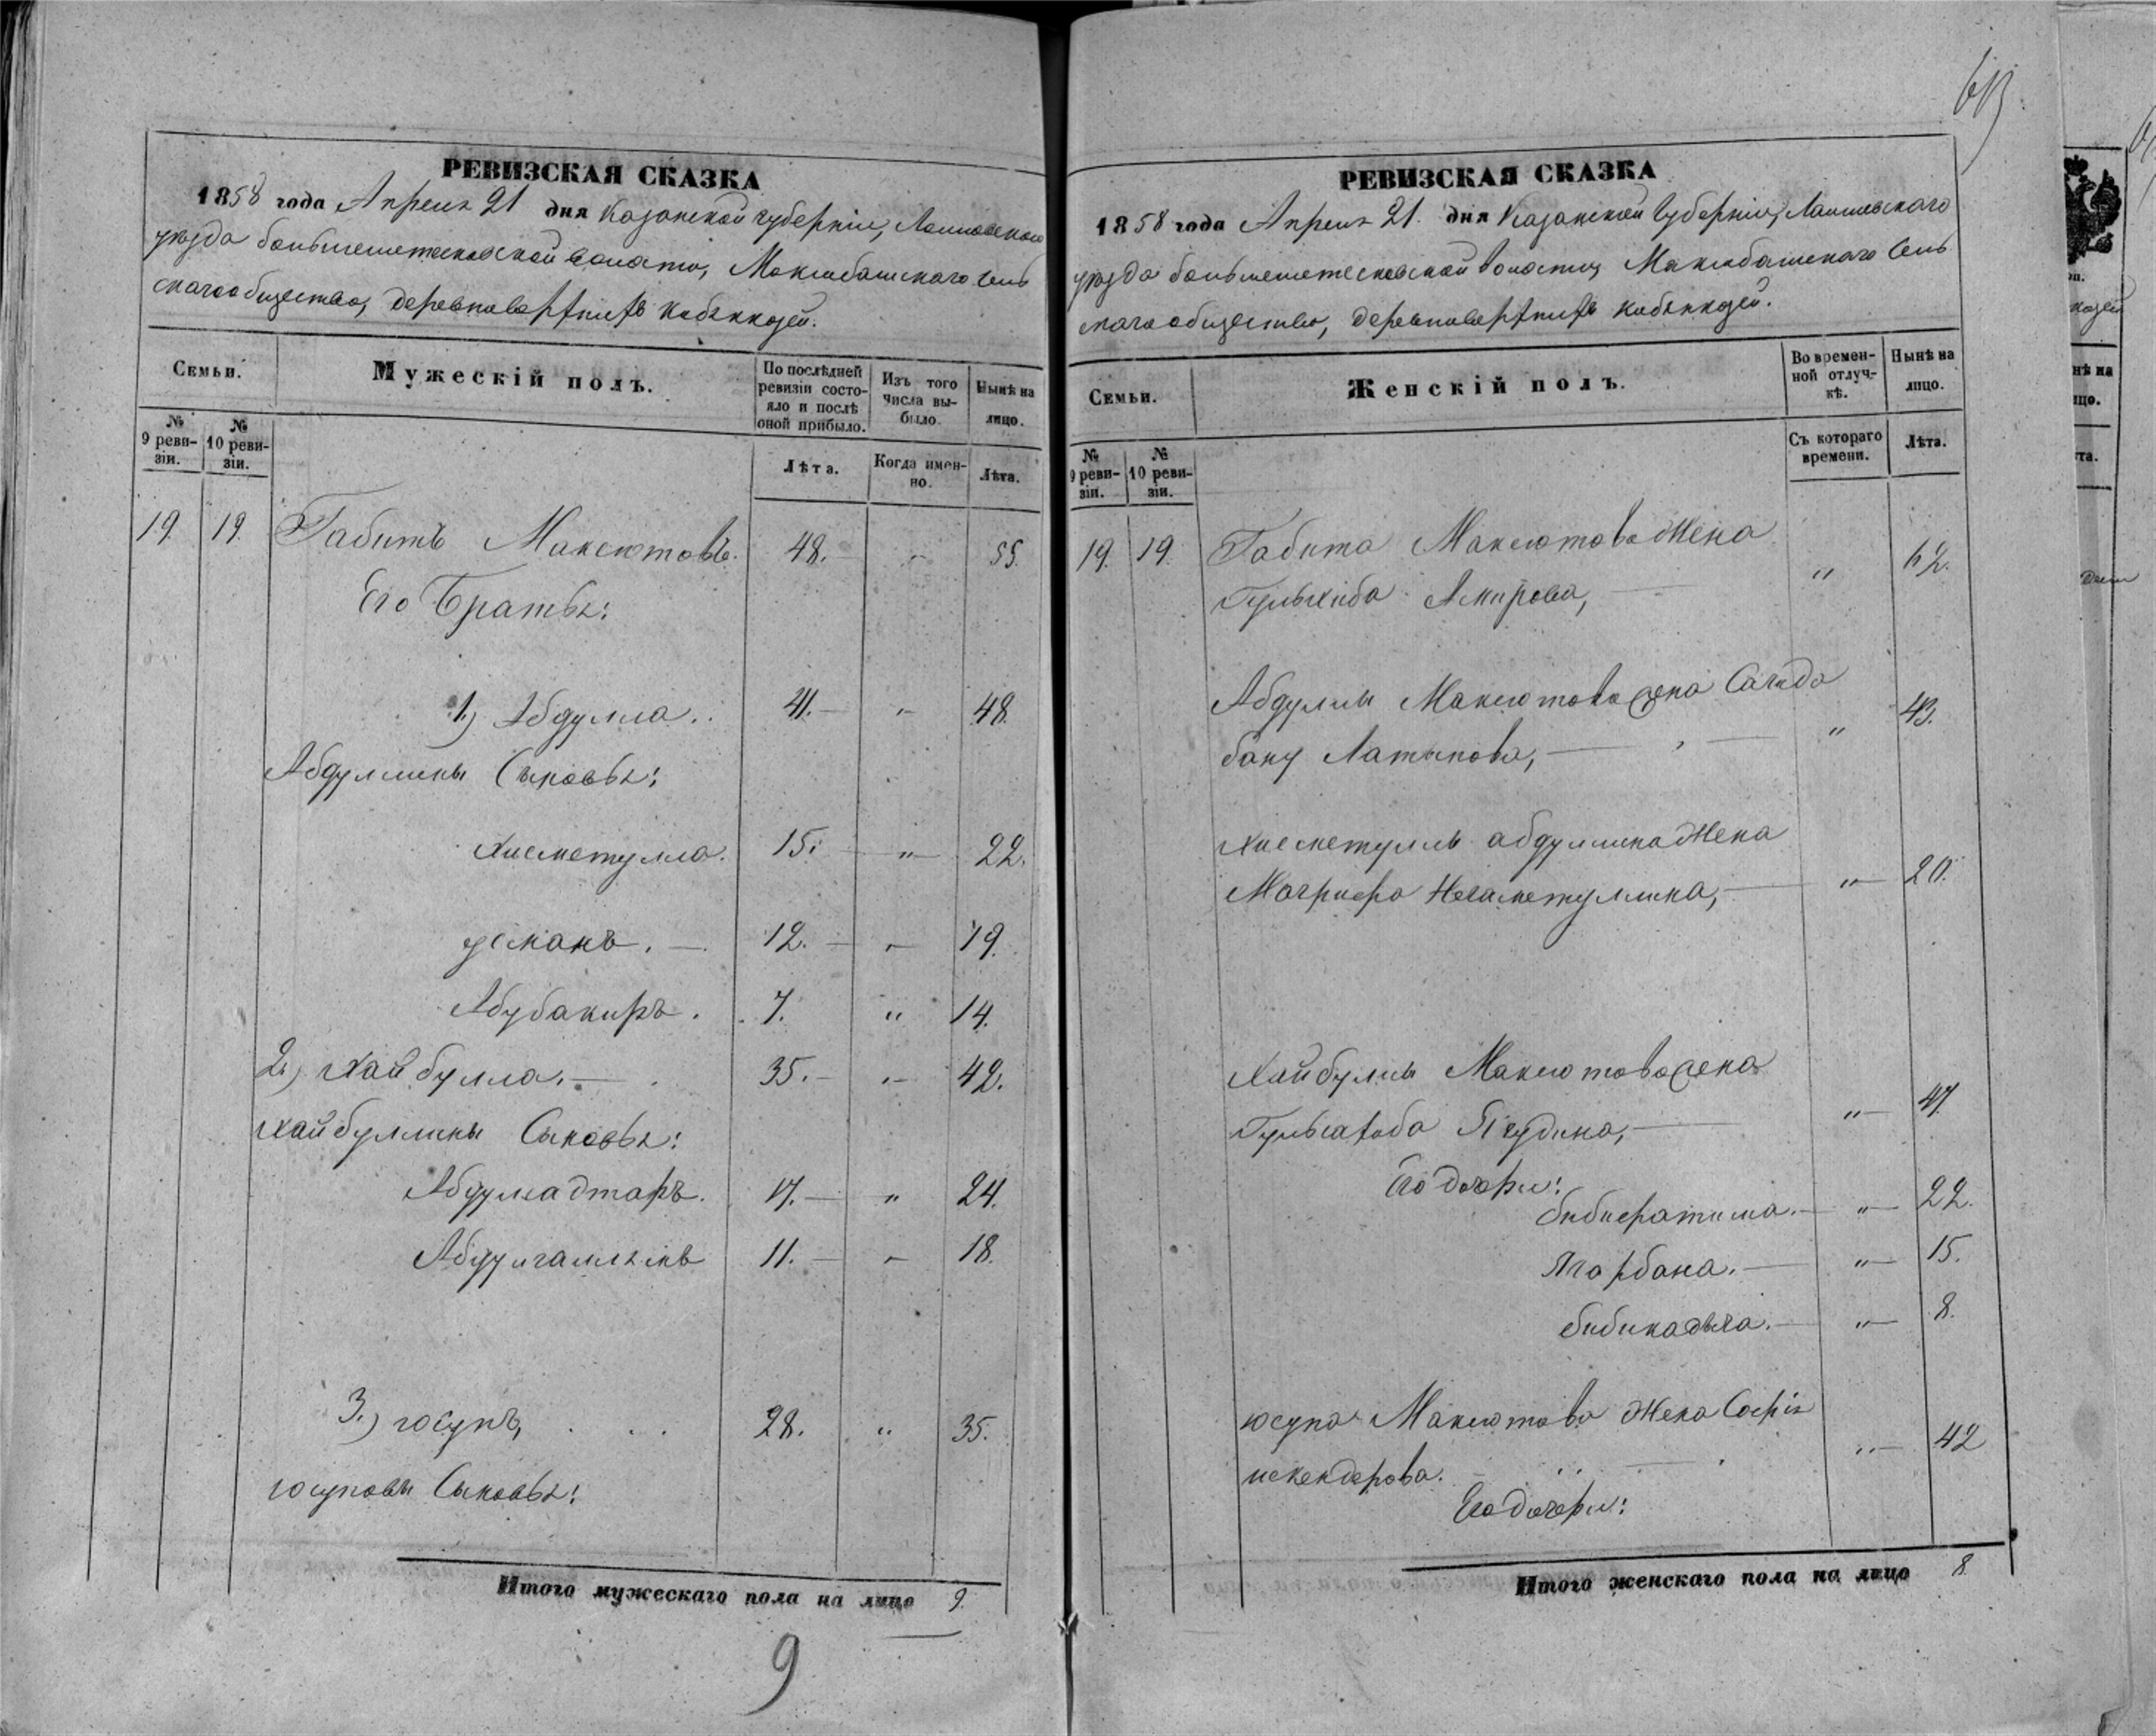 РЕВИЗСКАЯ СКАЗКА
1858 года Апреля 21 дня Казанской губернiи, Лаишевскаго
уезда волости, Сель
скаго общества, деревни
Семьи.
Мужескiй полъ.
По послѣдней ревизiи состояло и послѣ оной прибыло.
Изъ того числа выбыло.
Нынѣ на лицо.
№ 9 ревизiи.
№ 10 ревизiи.
Лѣта.
Когда именно.
Лѣта.
19. 19. Габитъ Максютовъ. 48. „ 55.
Его Братья:
1.) Абдулла. 41. „ 48.
Абдуллины Сыновья:
Хисметулла. 15. „ 22.
Усманъ. 12. „ 19.
Абубакиръ. 7. „ 14.
2.) Хайбулла. 35. „ 42.
Хайбуллины Сыновья:
17. „ 24.
11. „ 18.
3.) юсупъ, 28. „ 35.
юсуповы Сыновья:
Итого мужескаго пола на лицо 9.
9
РЕВИЗСКАЯ СКАЗКА
1858 года Апреля 21. дня Казанской Губернiи, Лаишевскаго
уезда волости, Сель
скаго общества, деревни
Семьи.
Женскiй полъ.
Во временной отлучкѣ.
Нынѣ на лицо.
№ 9 ревизiи.
№ 10 ревизiи.
Съ котораго времени.
Лѣта.
19. 19. Габита Максютова Жена
Амирова, „ 62.
Абдуллы Максютова жена Сагида
бану Латыпова, „ 43.
Хисметуллы абдуллина Жена
Негаметуллина, „ 20.
Хайбуллы Максютова жена
Ягудина, „ 47.
Его дочери:
бибифатима. „ 22.
„ 15.
„ 8.
юсупа Максютова Жена Софiя
искендерова. „ 42
Его дочери:
Итого женскаго пола на лицо 8